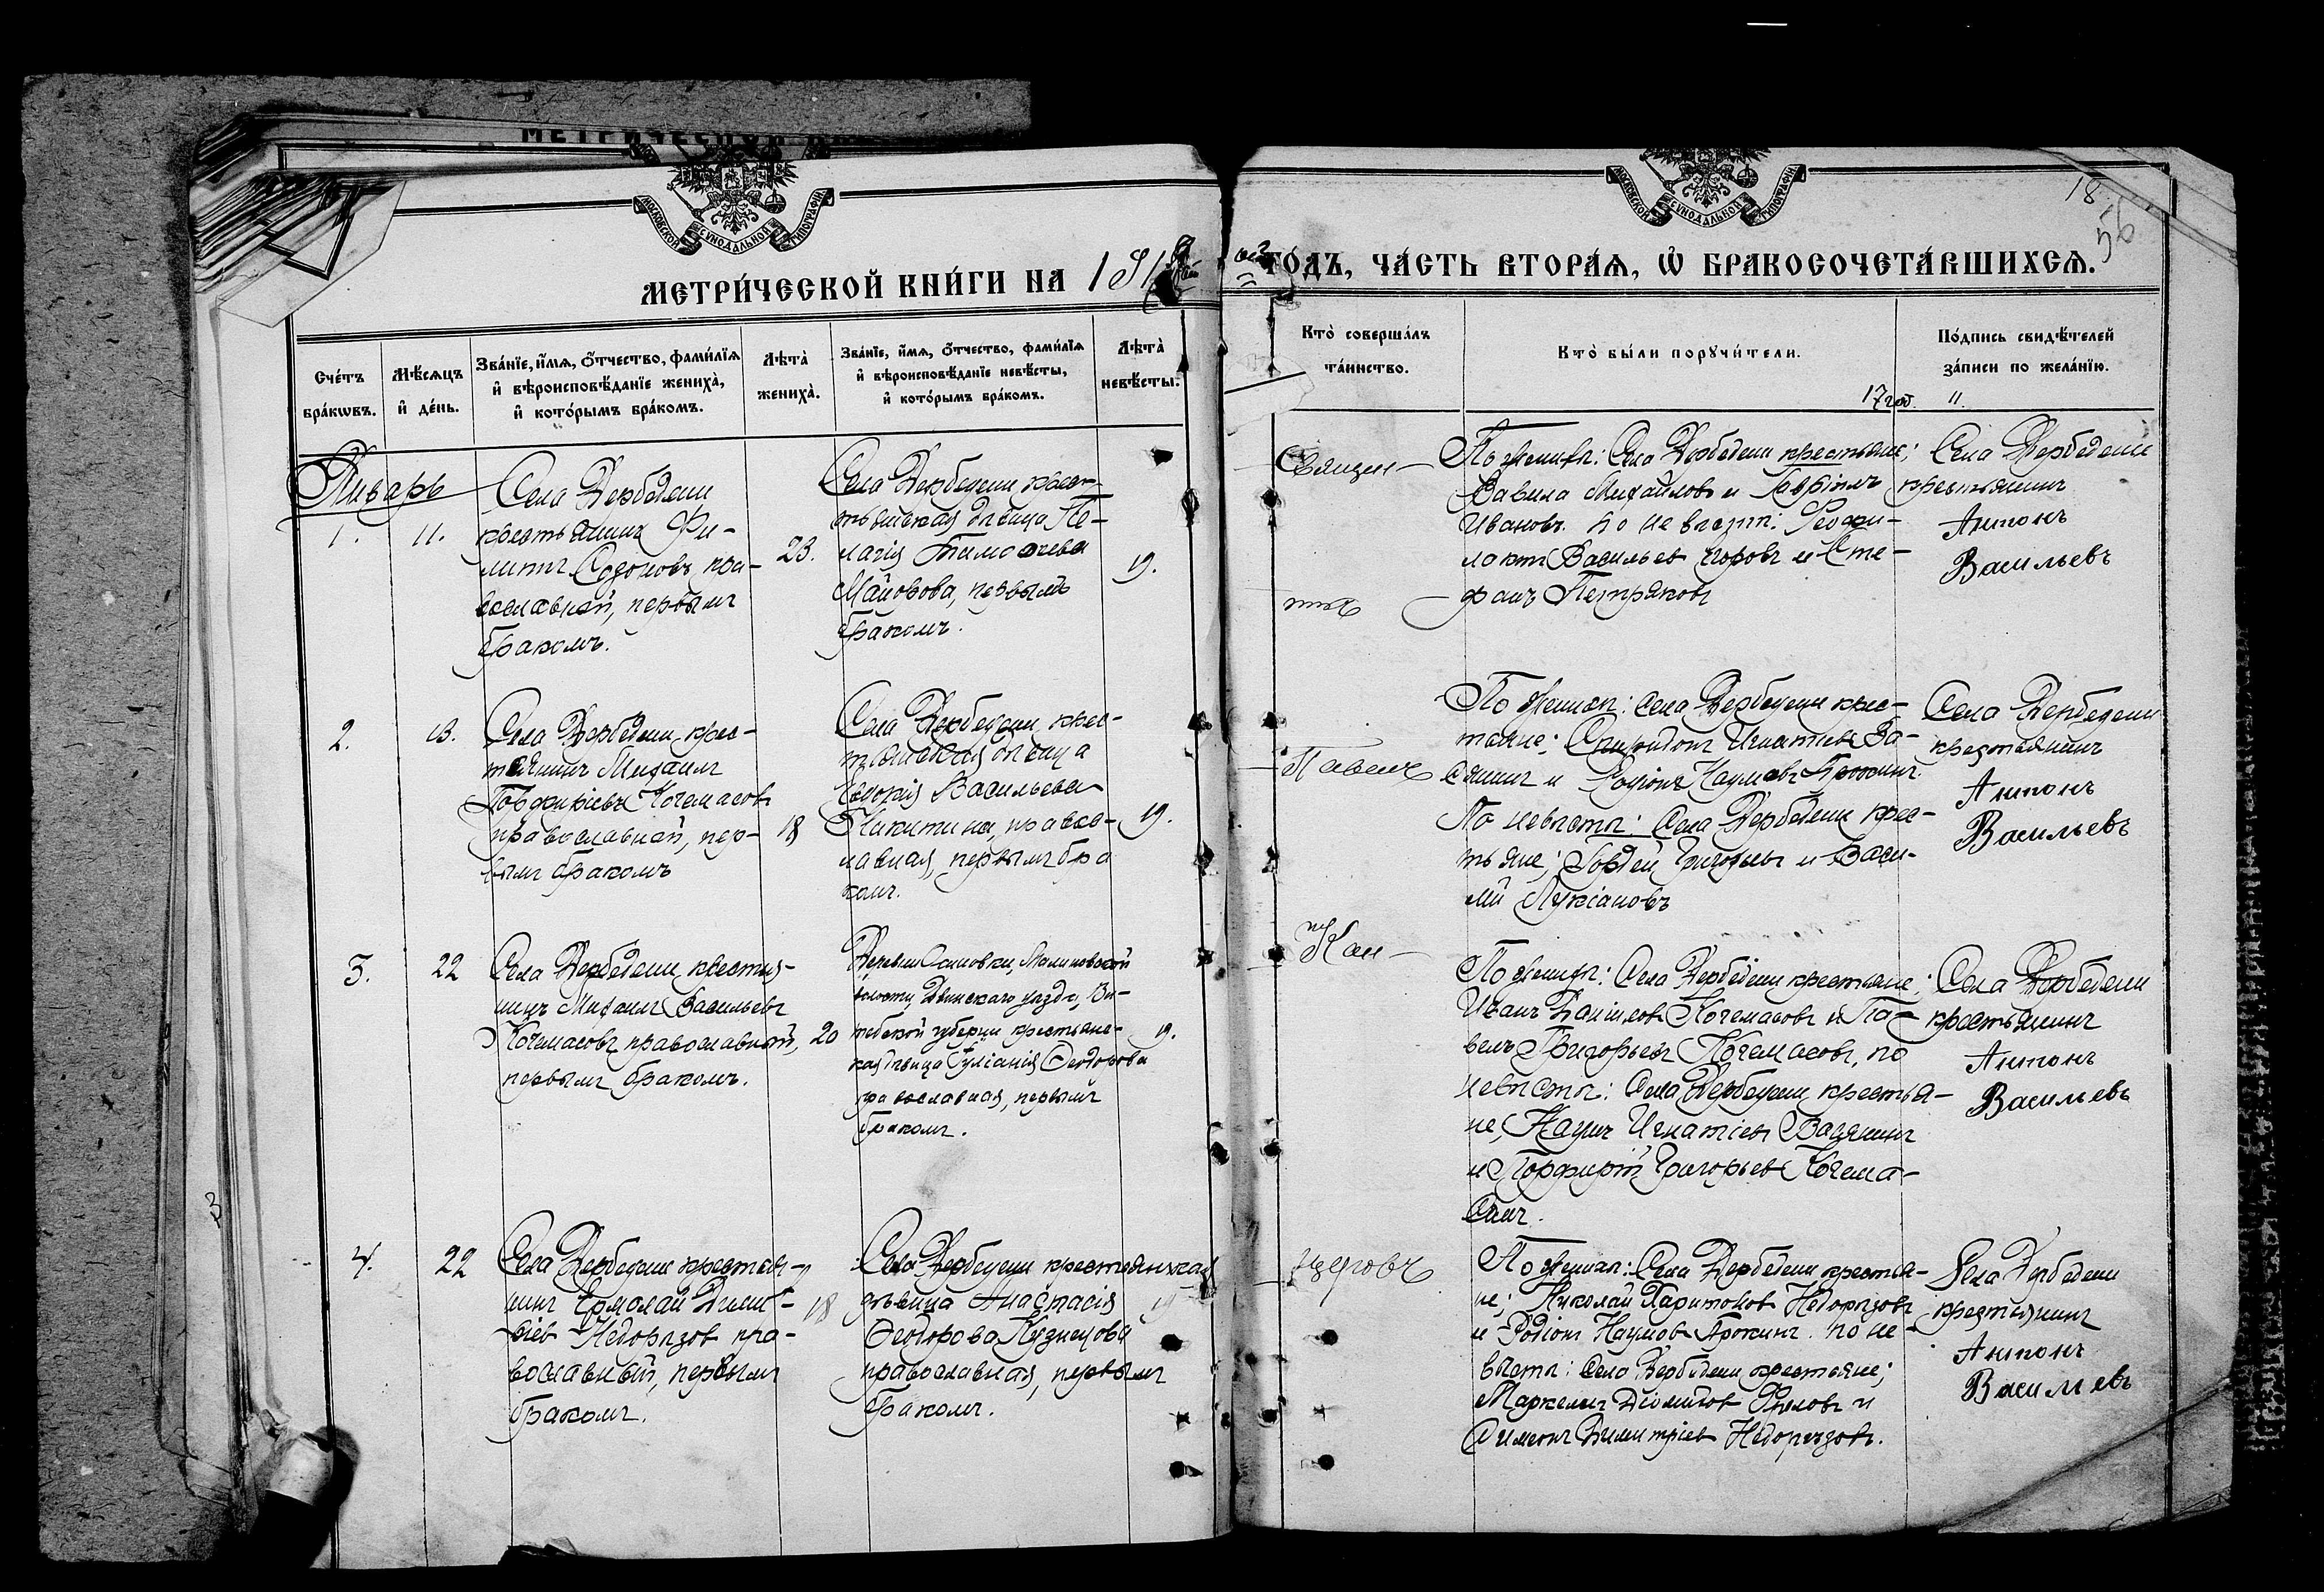 МОСКОВСКОЙ СѴНОДАЛЬНОЙ ТИПОГРАФІИ
МОСКОВСКОЙ СѴНОДАЛЬНОЙ ТИПОГРАФІИ
18
56
МЕТРИ́ЧЕСКОЙ КНИ́ГИ НА 191
ГО́ДЪ, ЧА́СТЬ ВТОРА́Ѧ, Ѡ҆ БРАКОСОЧЕТА́ВШИХСѦ.
Сче́тъ бра́кѡвъ.
Мѣ́сѧцъ и҆ де́нь.
Зва́нїе, и҆́мѧ, ѻ҆́тчество, фами́лїѧ
и҆ вѣроисповѣ́данїе жениха̀,
и҆ кото́рымъ бра́комъ.
Лѣта̀ жениха̀.
Зва́нїе, и҆́мѧ, ѻ҆́тчество, фами́лїѧ
и҆ вѣроисповѣ́данїе невѣ́сты,
и҆ кото́рымъ бра́комъ.
Лѣта̀ невѣ́сты.
Кто̀ соверша́лъ та́инство.
Кто̀ бы́ли порꙋчи́тели.
По́дпись свидѣ́телей за́писи по жела́нїю.
17 год.
Январь
1.
11.
Села Дербедени
крестьянинъ Фи-
липпъ
православный, первымъ
бракомъ.
23.
Села Дербедени крес-
тьянская дѣвица Пе-
лагія Тимофеева
Майорова, первымъ
бракомъ.
19.
Священ-
никъ
По женихѣ: Села Дербедени крестьяне;
Вавила Михайловъ и Гавріилъ
Ивановъ. По невѣстѣ: Феофи-
лактъ Васильев и Сте-
фанъ Петряковъ
Села Дербедени
крестьянинъ
Антонъ
Васильевъ
2.
13.
Села Дербедени крес-
тьянинъ Михаилъ
Порфирьевъ Кочемасовъ
православный, пер-
вымъ бракомъ
18
Села Дербедени крес-
тьянская дѣвица
Евдокія Васильева
Никитина, правос-
лавная, первымъ бра
комъ.
19.
Павелъ
По женихѣ: Села Дербедени крес-
тьяне; Спиридонъ Игнатьевъ Ва-
сянинъ и Родіонъ Наумовъ Ярокинъ.
По невѣстѣ: Села Дербедени крес-
тьяне; Гордей Григорьевъ и Васи-
лій Лукіановъ
Села Дербедени
крестьянинъ
Антонъ
Васильевъ
3.
22
Села Дербедени крестья-
нинъ Михаилъ Васильевъ
Кочемасовъ православный,
первымъ бракомъ.
20
Деревни Осиновки, Малиновской
волости Двинскаго уѣзда, Ви-
тебской губерніи крестьянс-
кая дѣвица Іуліанія Ѳеодорова
православная, первымъ
бракомъ.
19.
Кан-
По женихѣ: Села Дербедени крестьяне;
Иванъ Даниловъ Кочемасовъ и Па-
велъ Григорьевъ Кочемасовъ, по
невѣстѣ: Села Дербедени крестья-
не; Наумъ Игнатіевъ Васянинъ
и Порфирій Григорьев Кочема-
совъ.
Села Дербедени
крестьянинъ
Антонъ
Васильевъ
4.
22
Села Дербедени крестья-
нинъ Ермолай Димит-
ріев Недорѣзов пра-
вославный, первымъ
бракомъ.
18
Села Дербедени крестьянская
дѣвица Анастасія
Ѳеодорова Кузнецова
православная, первымъ
бракомъ.
19
церовъ
По женихѣ: Села Дербедени крестья-
не; Николай Харитонов Недорѣзовъ
и Родіонъ Наумов Ярокинъ. по не-
вѣстѣ: Села Дербедени крестьяне;
Маркелъ Діомидов и
Симеонъ Димитріев Недорѣзовъ.
Села Дербедени
крестьянинъ
Антонъ
Васильевъ